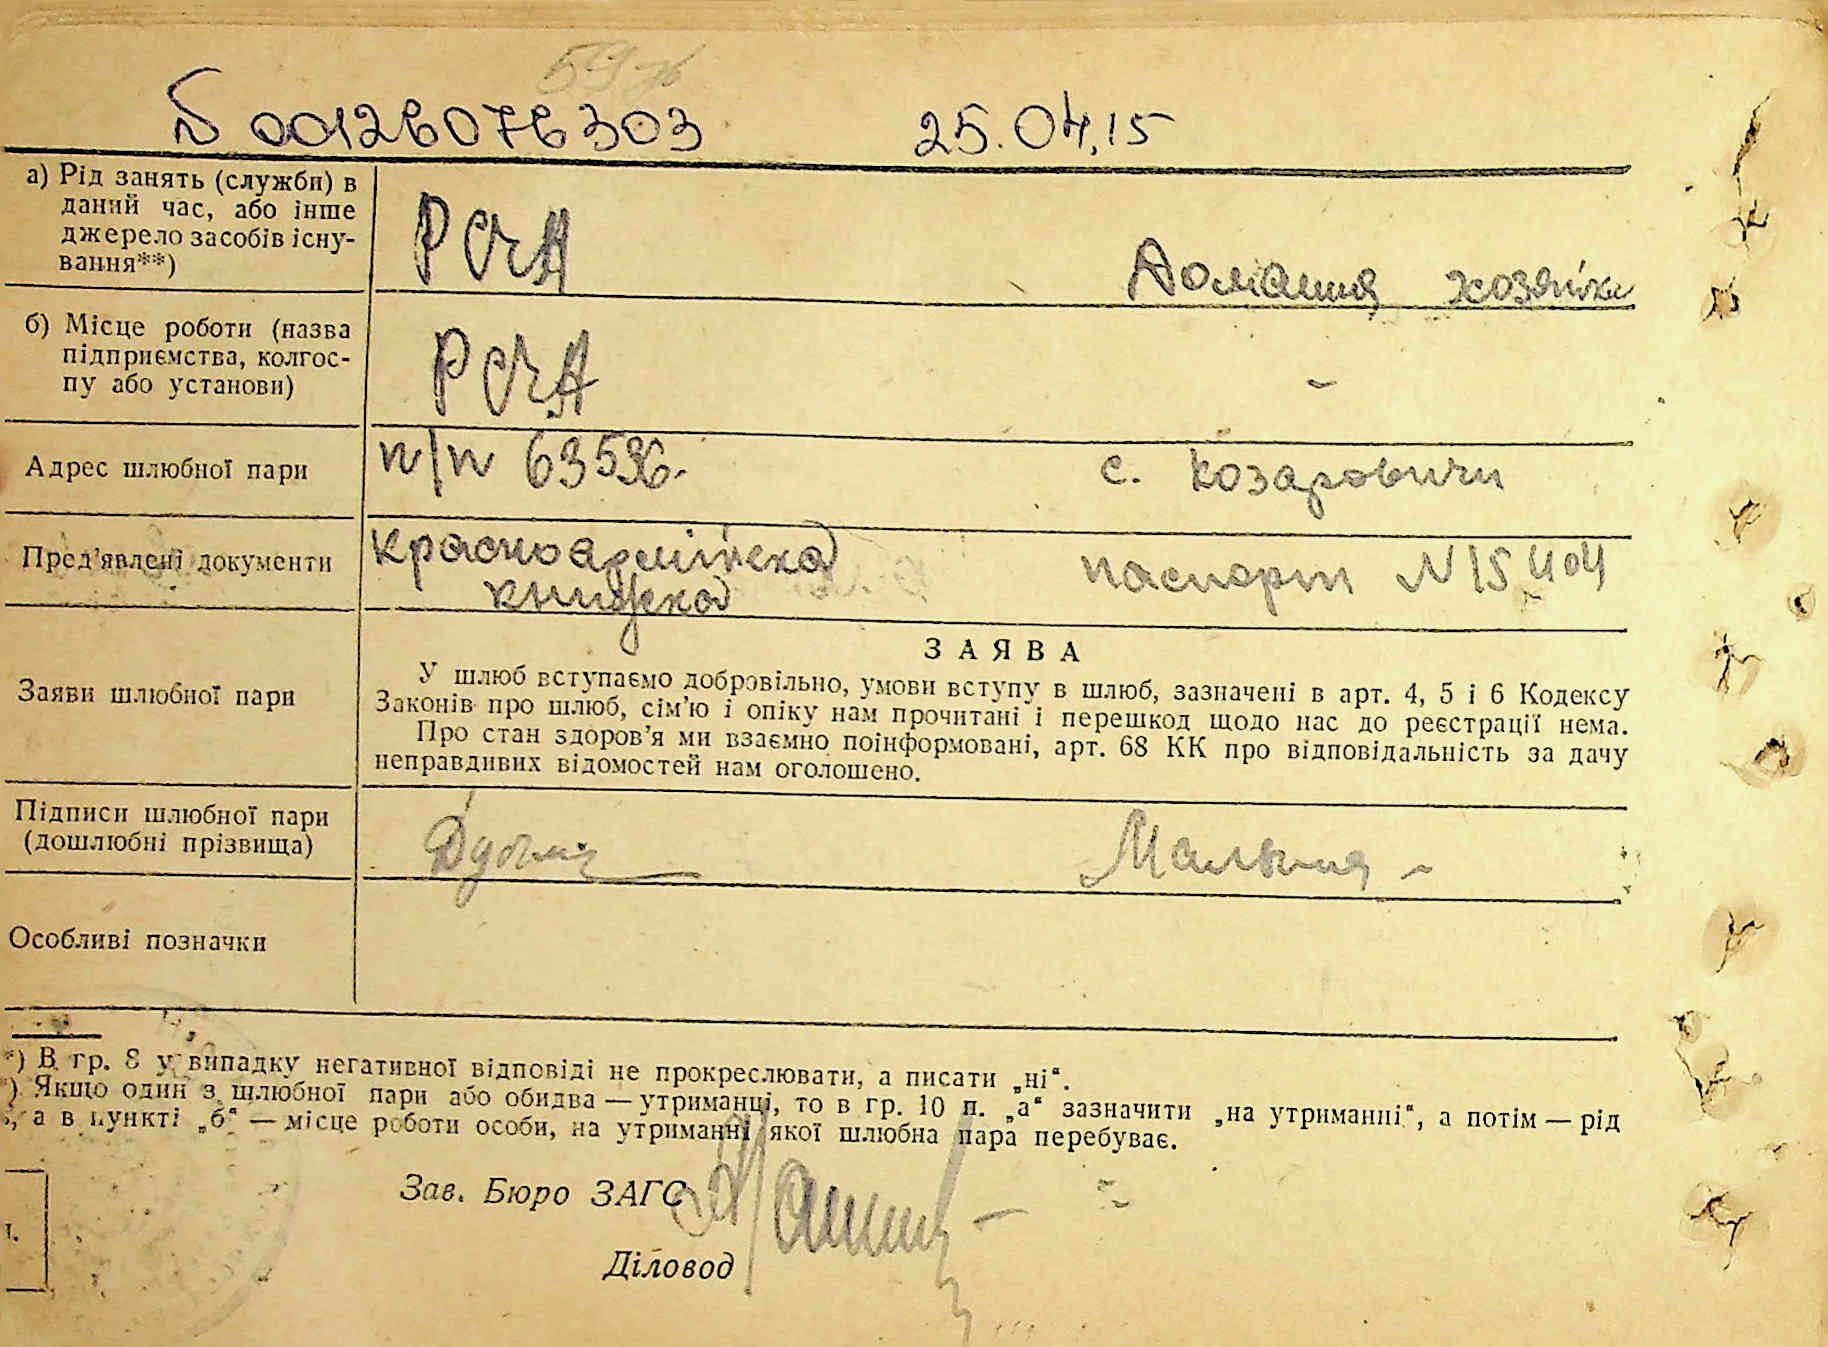 59
00126076303 25.04.15
а) Рід занять (служби) в
даний час, або інше
джерело засобів існу-
вання**)
РСЧА Домашня хозяйка
б) Місце роботи (назва
підприємства, колгос-
пу або установи)
РСЧА -
Адрес шлюбної пари п/п 63536. с. Козаровичи
Пред'явлені документи красноармійска паспорт N 15404
книжка
ЗАЯВА
Заяви шлюбної пари
У шлюб вступаємо добровільно, умови вступу в шлюб, зазначені в арт. 4, 5 і 6 Кодексу
Законів про шлюб, сім'ю і опіку нам прочитані і перешкод щодо нас до реєстрації нема.
Про стан здоров'я ми взаємно поінформовані, арт. 68 КК про відповідальність за дачу
неправдивих відомостей нам оголошено.
Підписи шлюбної пари
(дошлюбні прізвища)
Особливі позначки
*) В гр. 8 у випадку негативної відповіді не прокреслювати, а писати „ні“.
) Якщо один з шлюбної пари або обидва — утриманці, то в гр. 10 п. „а“ зазначити „на утриманні“, а потім — рід
, а в пункті „б“ — місце роботи особи, на утриманні якої шлюбна пара перебуває.
Зав. Бюро ЗАГС
Діловод